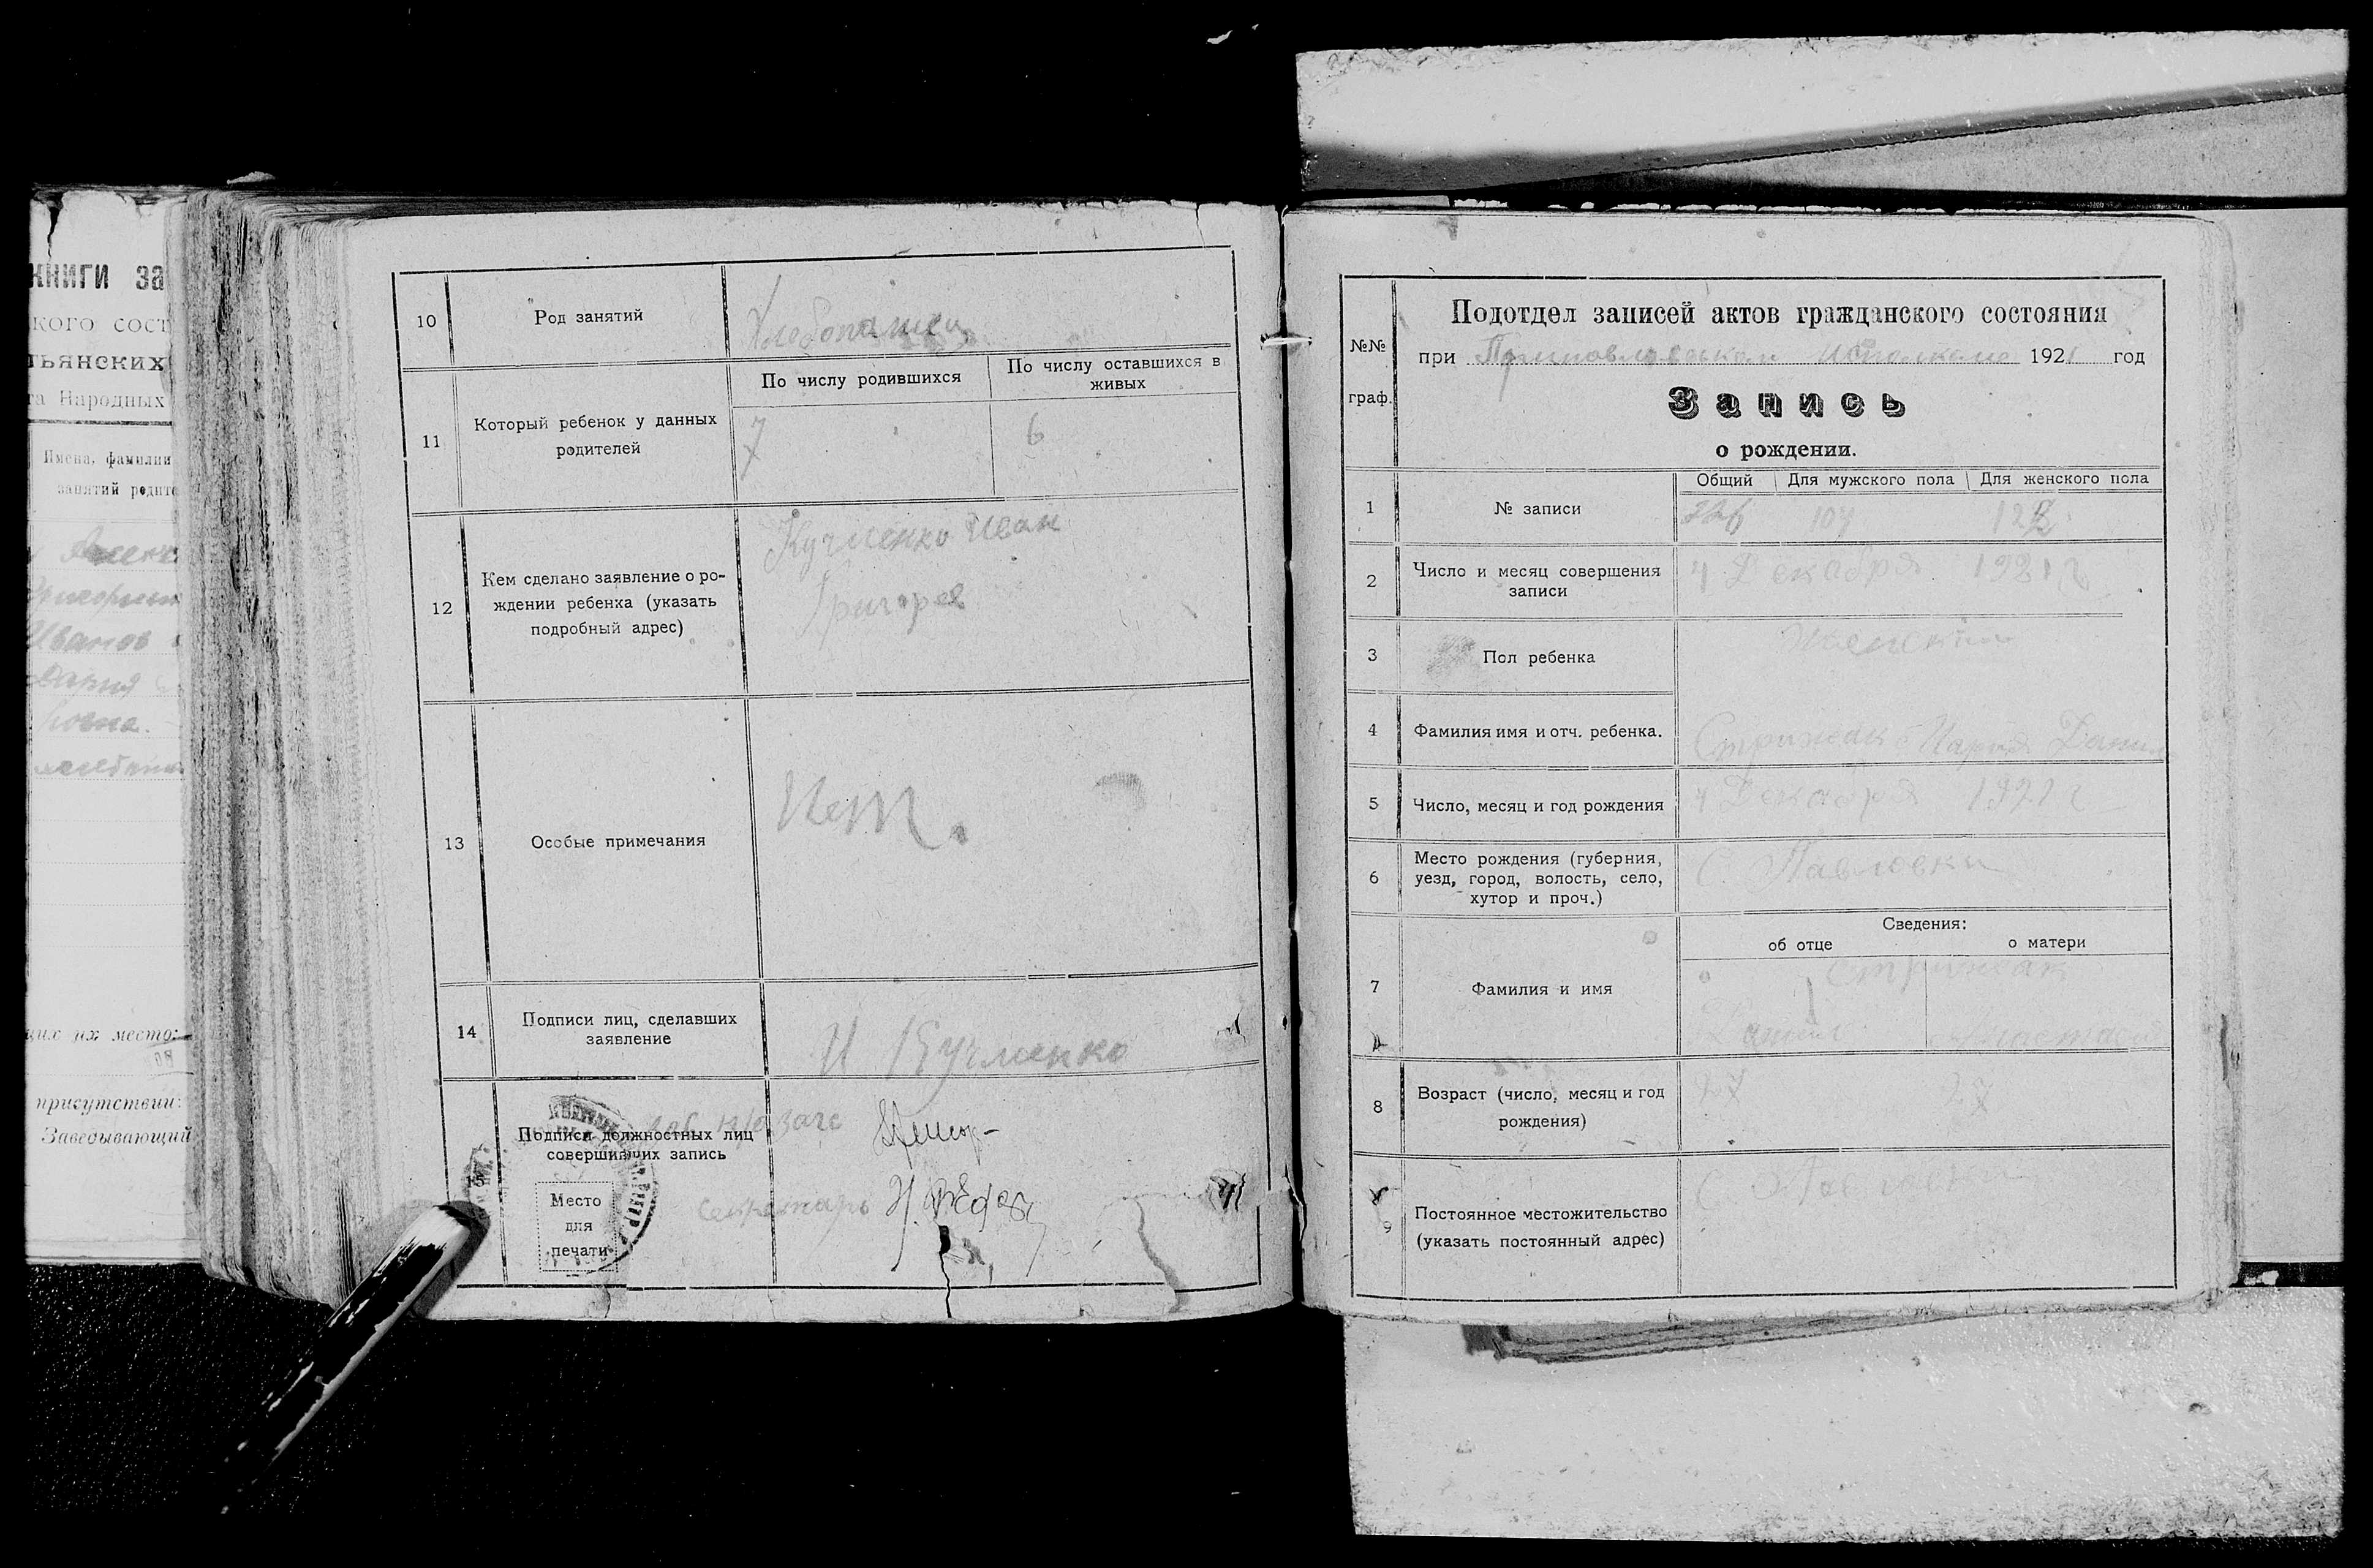 книги за
кого сост
тьянских
та Народных
Имена, фамилии
занятий родите
Иванов
Дария
их их место:
присутствии:
Заведывающий
10 Род занятий Хлебопашец
11 Который ребенок у данных родителей
По числу родившихся По числу оставшихся в живых
7 6
12 Кем сделано заявление о ро-
ждении ребенка (указать
подробный адрес)
Кучменко Иван
Григорев
13 Особые примечания Нет.
14 Подписи лиц, сделавших
заявление
И Кучменко
15 Подписи должностных лиц
совершивших запись
Зав. п/о Загс
секретарь
Место
для
печати
№№
граф.
Подотдел записей актов гражданского состояния
при исполкоме 1921 год
Запись
о рождении.
Общий Для мужского пола Для женского пола
1 № записи 226 104 122
2 Число и месяц совершения
записи
4 Декабря 1921 г
3 Пол ребенка Женский
4 Фамилия имя и отч. ребенка. Стрижак Мария Данил
5 Число, месяц и год рождения 4 Декабря 1921 г
6 Место рождения (губерния,
уезд, город, волость, село,
хутор и проч.)
С. Павловки
Сведения:
об отце о матери
7 Фамилия и имя
Стрижак
Данил Анастасия
8 Возраст (число, месяц и год
рождения)
27 27
9 Постоянное местожительство
(указать постоянный адрес)
С Павловки